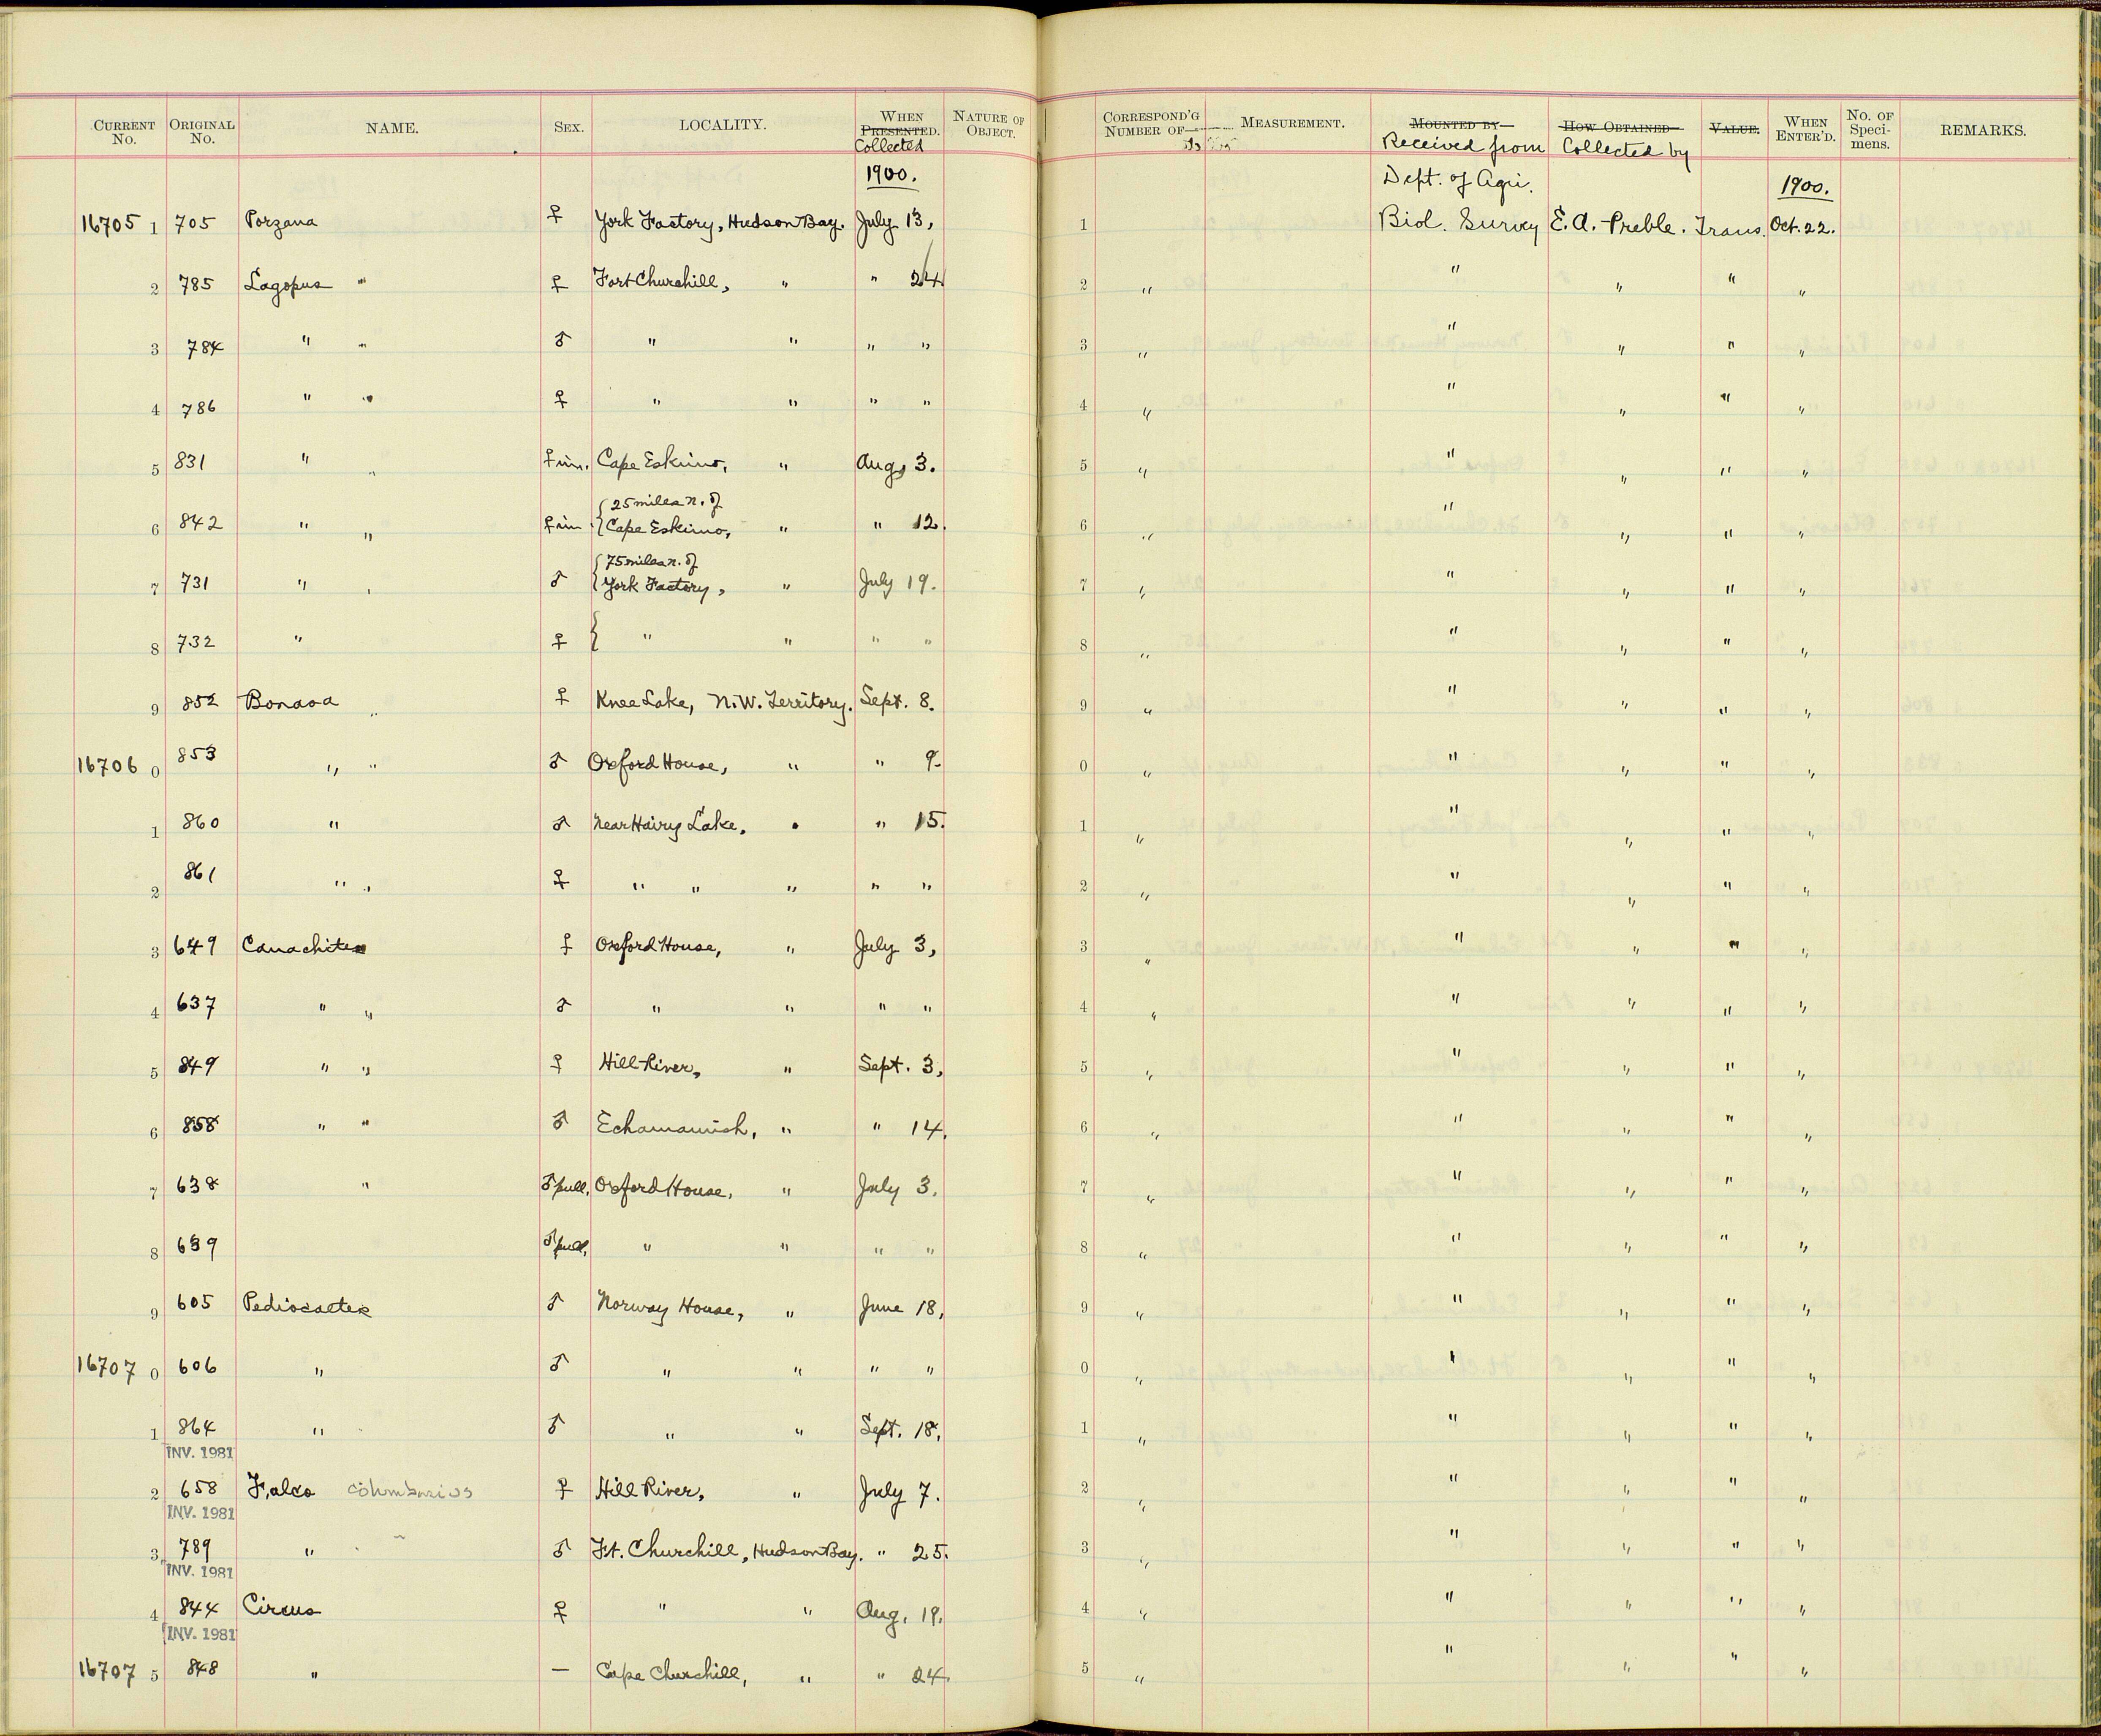 CURRENT No. ORIGINAL No. NAME. SEX. LOCALITY. WHEN PRESENTED. Collected NATURE OF OBJECT. CORRESPOND'G NUMBER OF— MEASUREMENT. MOUNTED BY— Received from HOW OBTAINED— Collected by VALUE. WHEN ENTER'D. No. OF Speci- mens. REMARKS.
1900. Dept. of Agri. 1900.
16705 1 705 Porzana ♀ York Factory, Hudson Bay. July 13, 1 Biol. Survey E. A. Preble. Trans. Oct. 22.
2 785 Lagopus " ♀ Fort Churchill, " " 24 2 " " " " "
3 784 " " ♂ " " " " 3 " " " " "
4 786 " " ♀ " " " " 4 " " " " "
5 831 " " ♀ im. Cape Eskimo, " Aug, 3. 5 " " " " "
6 842 " " ♀ im {25 miles n. of Cape Eskimo, " " 12. 6 " " " " "
7 731 " " ♂ {75 miles n. of York Factory, " July 19. 7 " " " " "
8 732 " ♀ { " " " " 8 " " " " "
9 852 Bonasa " ♀ Knee Lake, N.W. Territory. Sept. 8. 9 " " " " "
16706 0 853 " " ♂ Oxford House, " " 9. 0 " " " " "
1 860 " ♂ Near Hairy Lake, " " 15. 1 " " " " "
2 861 " " ♀ " " " " " 2 " " " " "
3 649 Canachites ♀ Oxford House, " July 3, 3 " " " " "
4 637 " " ♂ " " " " 4 " " " " "
5 849 " " ♀ Hill River, " Sept. 3, 5 " " " " "
6 858 " " ♂ Echamamish, " " 14, 6 " " " " "
7 638 " ♂ pull, Oxford House, " July 3. 7 " " " " "
8 639 ♂ pull, " " " " 8 " " " " "
9 605 Pediocaetes ♂ Norway House, " June 18, 9 " " " " "
16707 0 606 " ♂ " " " " 0 " " " " "
1 864 " ♂ " " Sept. 18, 1 " " " " "
INV. 1981
2 658 Falco columbarius ♀ Hill River, " July 7. 2 " " " " "
INV. 1981
3 789 " " ♂ Ft. Churchill, Hudson Bay. " 25. 3 " " " " "
INV. 1981
4 844 Circus ♀ " " Aug, 19. 4 " " " " "
INV. 1981
16707 5 848 " — Cape Churchill, " " 24. 5 " " " " "